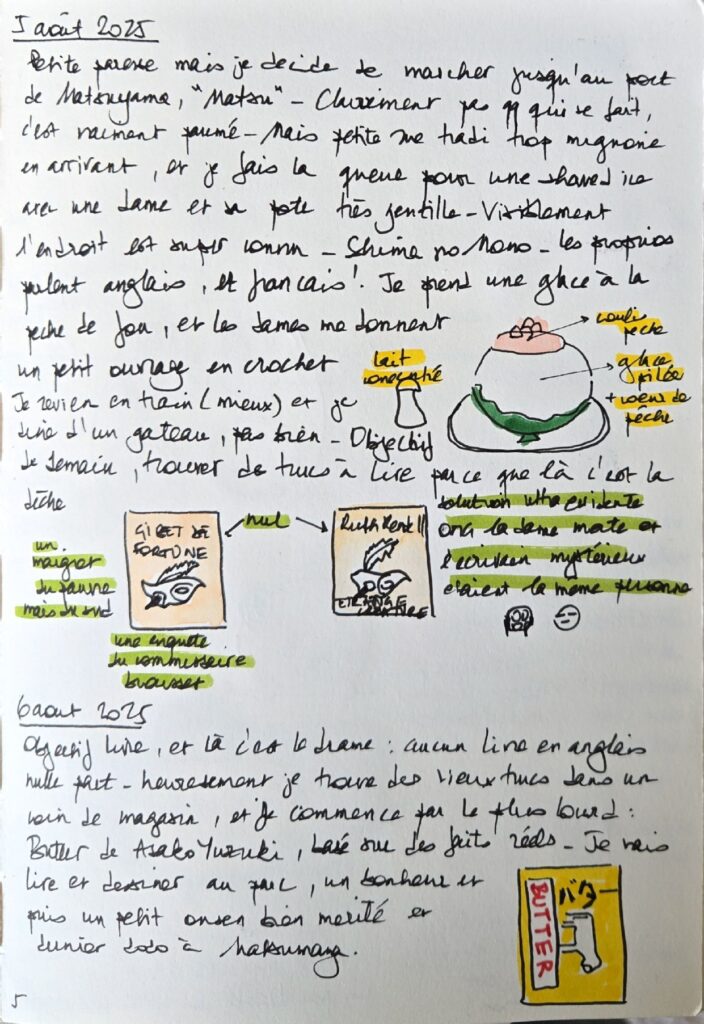 5 août 2025
Petite paresse mais je decide de marcher jusqu'au port
de Matsuyama, "Matsu" - Clairement pas qq qui se fait,
c'est vraiment paumé - Mais petite rue tradi trop mignonne
en arrivant, et je fais la queue pour une shaved ice
avec une dame et sa pote très gentille - Visiblement
l'endroit est super connu - Shima no Mono - les proprios
parlent anglais, et français! Je prend une glace à la
pêche de fou, et les dames me donnent
un petit ouvrage en crochet
Je revien en train (mieux) et je
dine d'un gateau, pas bien - Objectif
de demain, trouver de trucs à lire parce que là c'est la
dèche
coulis
pêche
glace
pilée
+ coeur de
pêche
lait
concentré
GIBET DE
FORTUNE
nul
Ruth Rendell
ETRANGE
CREATURE
un
maigret
du pauvre
mais du sud
une enquête
du commissaire
solution ultra evidente
la dame morte et
l'écrivain mystérieux
étaient la même personne
6 aout 2025
Objectif livre, et là c'est le drame : aucun livre en anglais
nulle part - heureusement je trouve des vieux trucs dans un
coin de magasin, et je commence par le plus lourd :
Butter de Asako Yuzuki, basé sur des faits réels - Je vais
lire et dessiner au parc, un bonheur et
puis un petit onsen bien mérité et
dernier dodo à Matsuyama.
バター
BUTTER
5